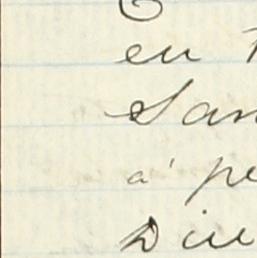 en
San
à pe
Die